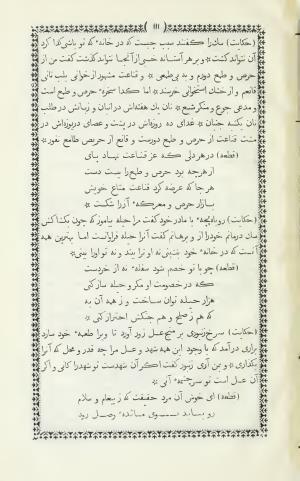 ۱۱۱
(حکایت) سگ را گفتند سبب چیست که در خانه که تو باشی گدا گرد
آن نتواند گشت و بر هر آستانه خسپ از آنجا نتواند گذشت گفت من از
حرص و طمع دورم و به بی طمعی و قناعت مشهور از خوانی بلب نانی
قانعم و از خشک استخوانی خرسند اما گدا سخره حرص و طمع است
و مدعی جوع و منکر شبع نان یک هفته اش در انبان و زبانش در طلب
نان یکشبه جنبان غذای ده روزه اش در پشت و عصای دریوزه اش در
مشت قناعت از حرص و طمع دورست و قانع از حریص طامع نفور
(قطعه) در هر دلی که عز قناعت نهاد پای
از هر چه بود حرص و طمع را ببست دست
هر جا که عرضه کرد قناعت متاع خویش
بازار حرص و معرکه آز را شکست
(حکایت) روباه بچه با مادر خود گفت مرا حیله بیاموز که چون بکشاکش
سگ درمانم خود را از و برهانم گفت آنرا حیله فراوانست اما بهترین همه
آنست که در خانه خود بنشینی نه او ترا بیند و نه تو او را بینی
(قطعه) چو با تو خصم شود سفله نه از خردست
که در خصومت او مکر و حیله ساز کنی
هزار حیله توان ساخت و ز همه آن به
که هم ز صلح و هم جنگش احتراز کنی
(حکایت) سرخ زنبوری بر مگس عسل زور آورد تا ویرا طعمه خود سازد
بزاری در آمد که با وجود این همه شهد و عسل مرا چه قدر و محل که آنرا
بگذاری و بمن آری زنبور گفت اگر آن شهدست تو شهد را کانی و اگر
آن عسل است تو سرچشمه آنی
(قطعه) ای خوش آن مرد حقیقت که ز پیغام و سلام
رو بتابد بسوی مائده وصل رود